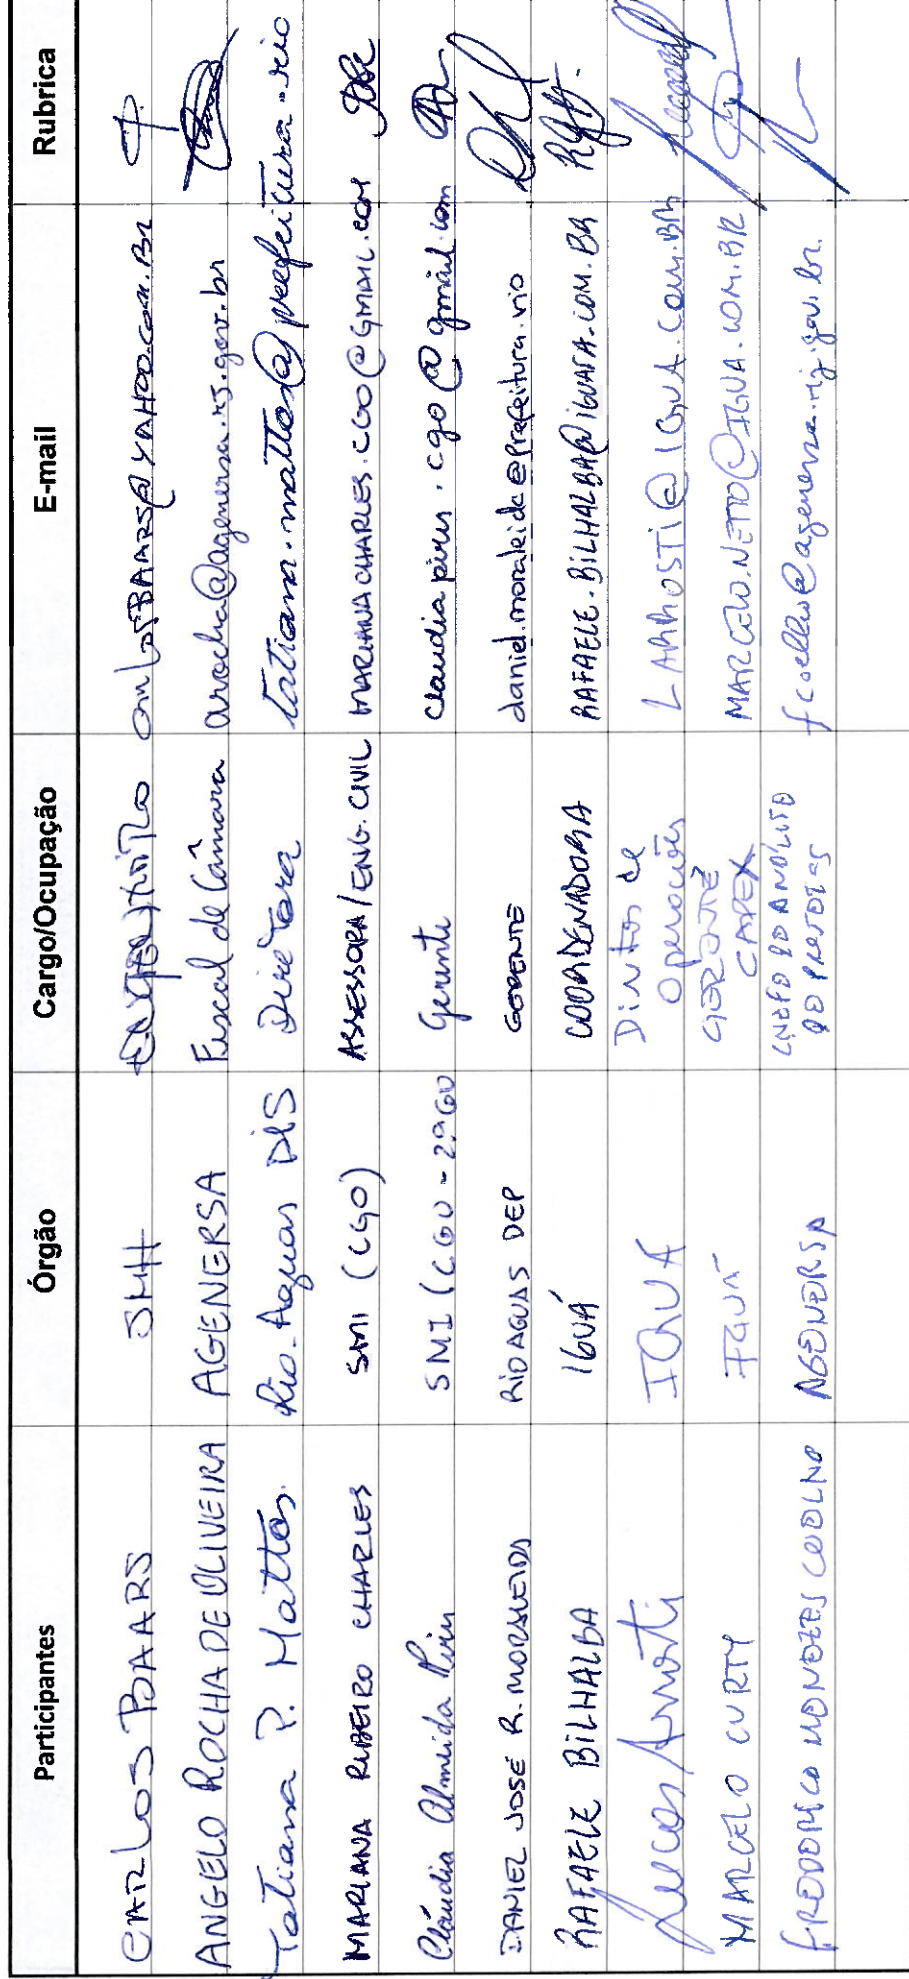 Participantes Órgão Cargo/Ocupação E-mail Rubrica
CARLOS BAARS SMH carlosBAARS@YAHOO.com.BR
ANGELO ROCHA DE OLIVEIRA AGENERSA Fiscal de Câmara arocha@agenersa.rj.gov.br
Tatiana P. Mattos. Rio-Aguas DIS Diretora tatiana.mattos@prefeitura.rio
MARIANA RIBEIRO CHARLES SMI (CGO) ASSESSORA/ENG. CIVIL MARIANACHARLES.CGO@GMAIL.COM
Cláudia Almeida SMI (CGO - 2ªGO Gerente
DANIEL JOSÉ R. MORALEIDA RIOAGUAS DEP GERENTE daniel.moraleida@prefeitura.rio
RAFAELE BILHALBA IGUÁ COORDENADORA RAFAELE.BILHALBA@IGUASA.COM.BR
Lucas Arrosti IGUA Diretor de
Operações LARROSTI@IGUA.COM.BR
MARCELO CURTY IGUÁ GERENTE
CAPEX MARCELO.NETTO@IGUA.COM.BR
FREDERICO MENEZES COELHO AGENERSA fcoelho@agenersa.rj.gov.br.